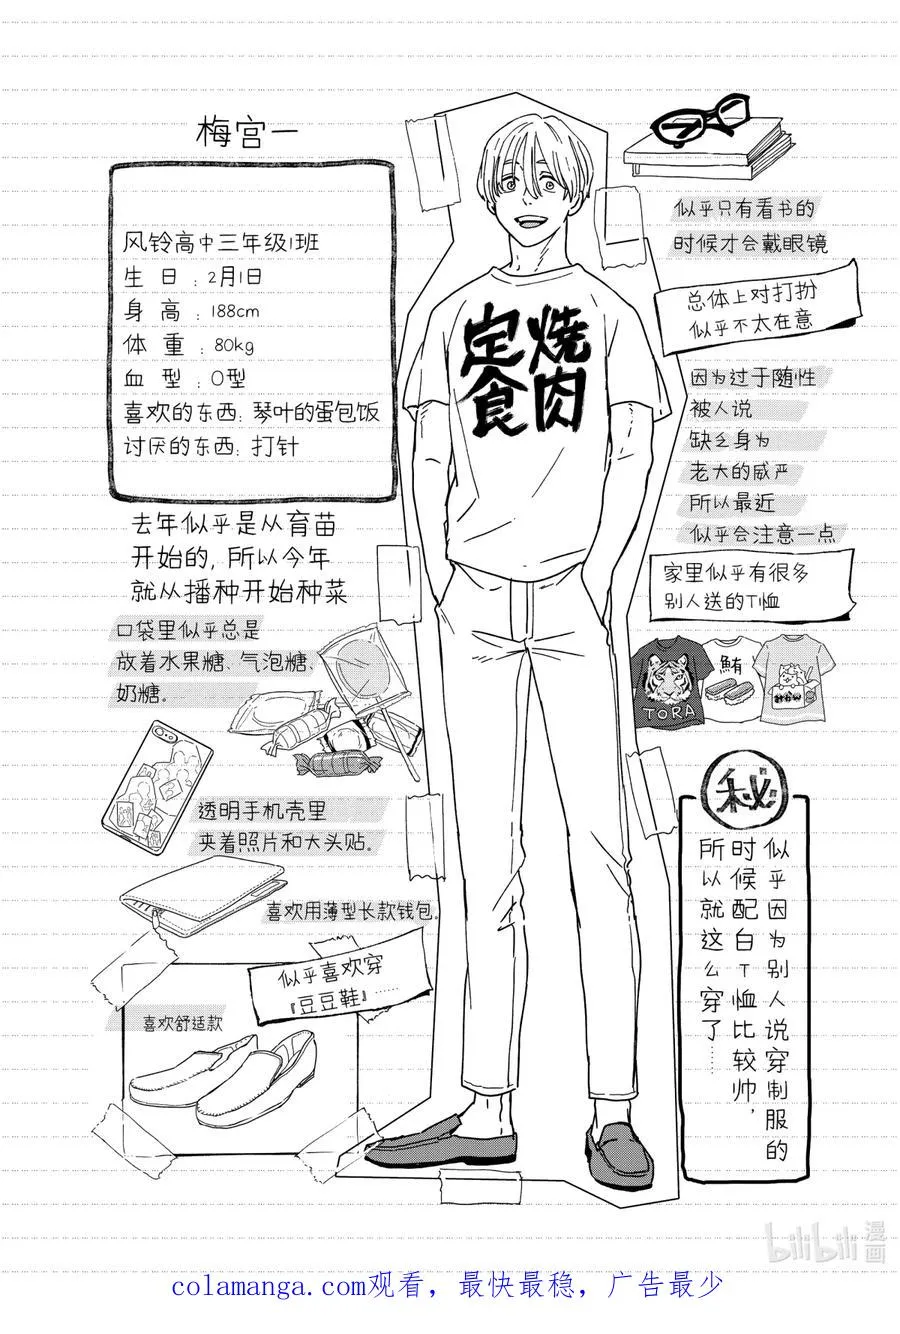 梅宫一
风铃高中三年级1班
生 日 : 2月1日
身 高 : 188cm
体 重 : 80kg
血 型 : O型
喜欢的东西: 琴叶的蛋包饭
讨厌的东西: 打针
去年似乎是从育苗
开始的, 所以今年
就从播种开始种菜
口袋里似乎总是
放着水果糖、气泡糖、
奶糖。
透明手机壳里
夹着照片和大头贴。
喜欢用薄型长款钱包。
似乎喜欢穿
『豆豆鞋』……
喜欢舒适款
焼肉
定食
似乎只有看书的
时候才会戴眼镜
总体上对打扮
似乎不太在意
因为过于随性
被人说
缺乏身为
老大的威严
所以最近
似乎会注意一点
家里似乎有很多
别人送的T恤
TORA
鮪
秘
似乎因为别人说穿制服的
时候配白T恤比较帅，
所以就这么穿了……
bilibili
漫画
colamanga.com观看，最快最稳，广告最少